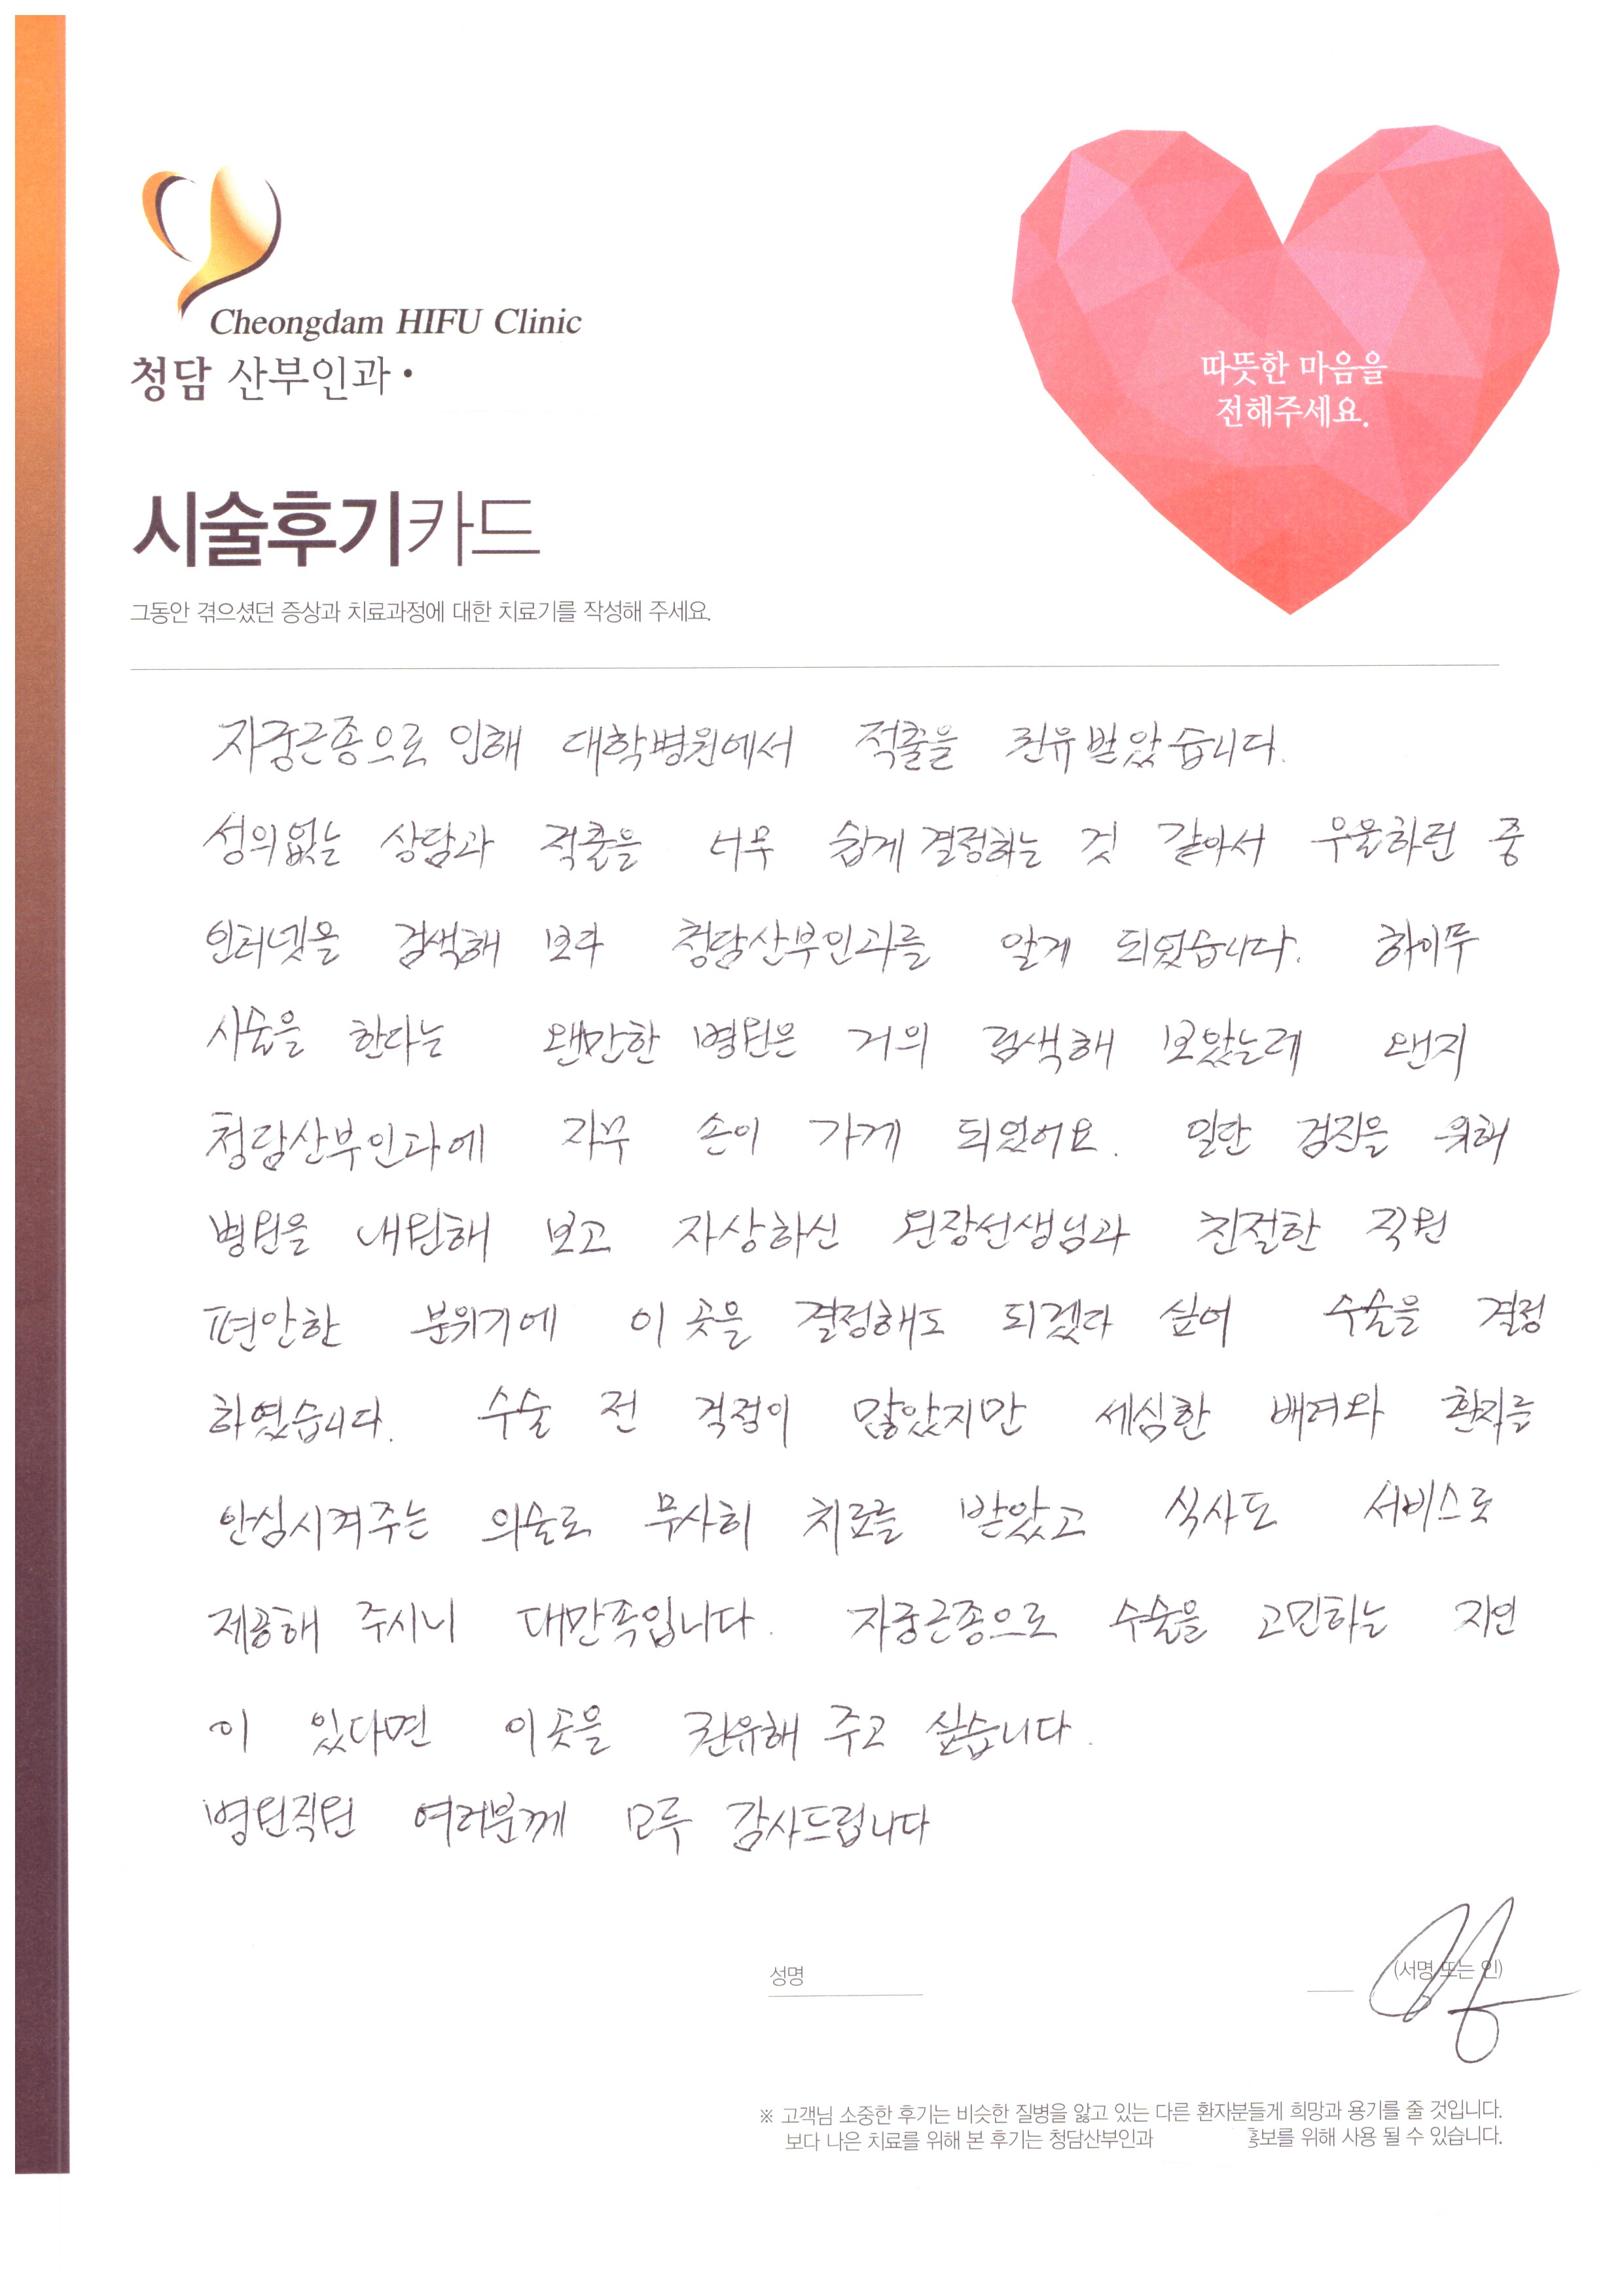 Cheongdam HIFU Clinic
청담 산부인과•
따뜻한 마음을
전해주세요.
시술후기카드
그동안 겪으셨던 증상과 치료과정에 대한 치료기를 작성해 주세요.
자궁근종으로 인해 대학병원에서 적출을 권유받았습니다.
성의없는 상담과 적출을 너무 쉽게 결정하는 것 같아서 우울하던 중
인터넷을 검색해 보다 청담산부인과를 알게 되었습니다. 하이푸
시술을 한다는 왠만한 병원은 거의 검색해 보았는데 왠지
청담산부인과에 자꾸 손이 가게 되었어요. 일단 검진을 위해
병원을 내원해 보고 자상하신 원장선생님과 친절한 직원
편안한 분위기에 이 곳을 결정해도 되겠다 싶어 수술을 결정
하였습니다. 수술 전 걱정이 많았지만 세심한 배려와 환자를
안심시켜주는 의술로 무사히 치료를 받았고 식사도 서비스로
제공해 주시니 대만족입니다. 자궁근종으로 수술을 고민하는 지인
이 있다면 이곳을 권유해 주고 싶습니다.
병원직원 여러분께 모두 감사드립니다
성명 (서명 또는 인)
※ 고객님 소중한 후기는 비슷한 질병을 앓고 있는 다른 환자분들게 희망과 용기를 줄 것입니다.
보다 나은 치료를 위해 본 후기는 청담산부인과 홍보를 위해 사용 될 수 있습니다.